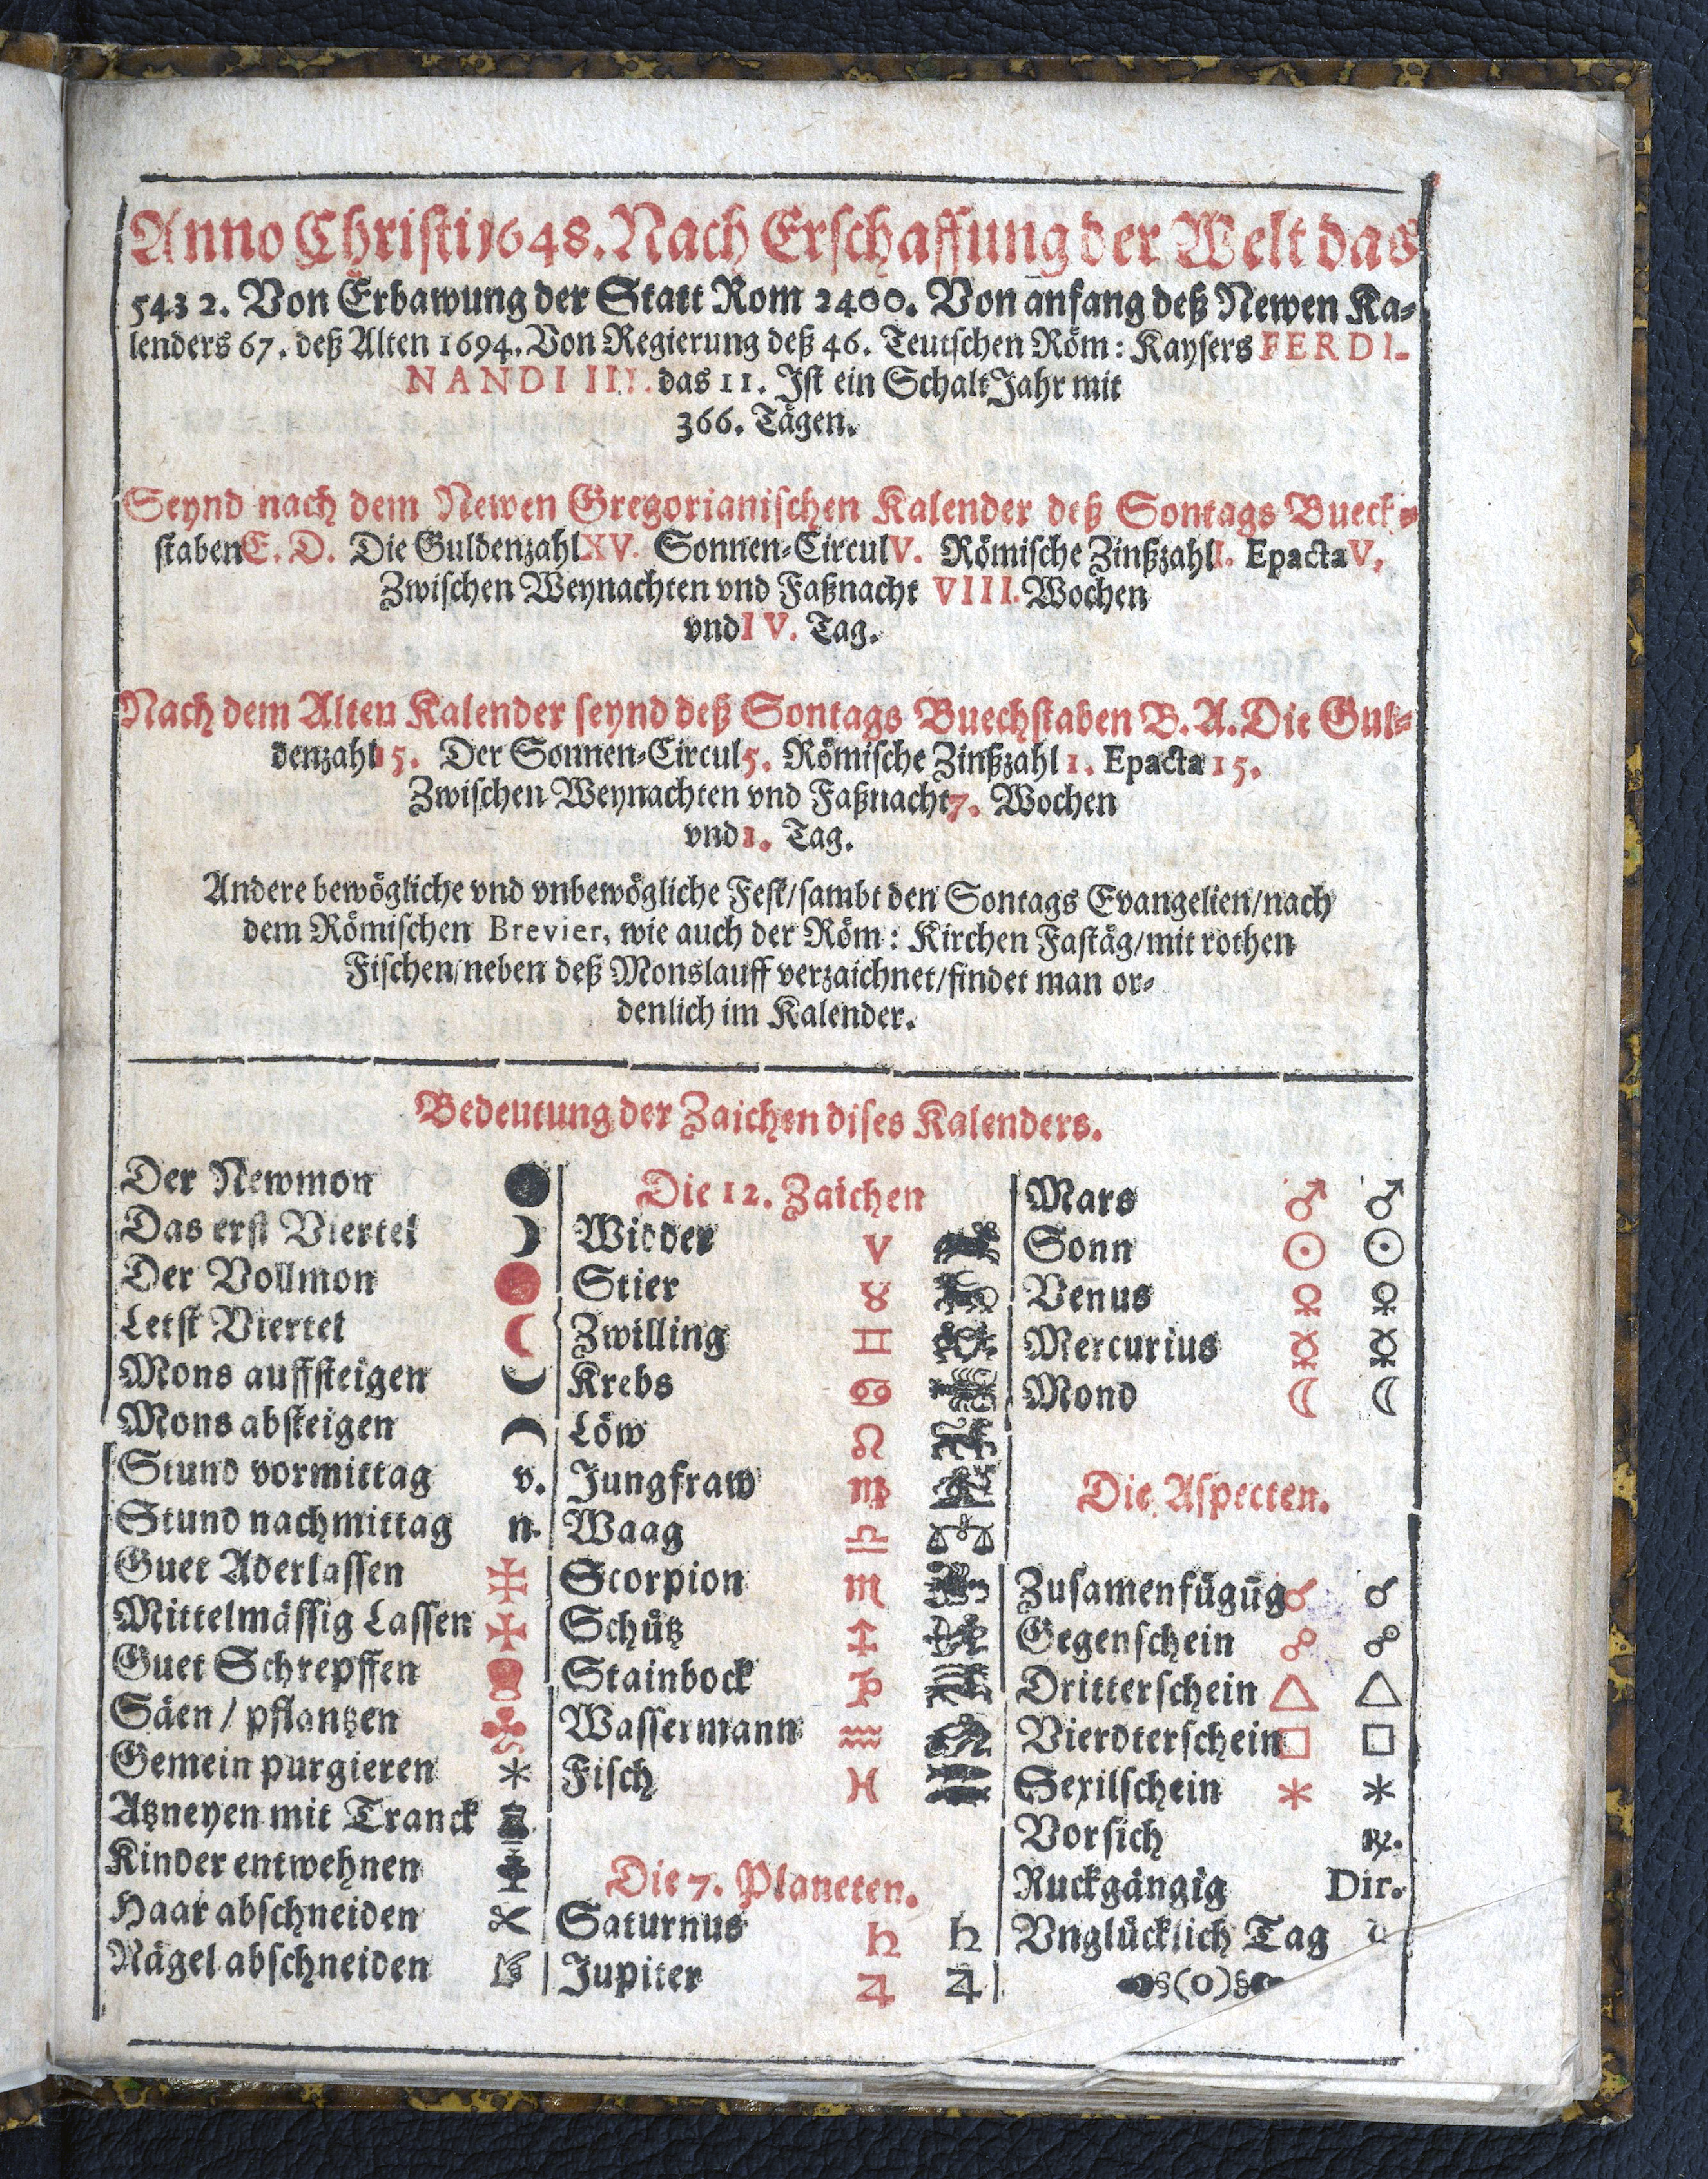 Anno Christi 1648. Nach Erschaffung der Welt das
5432. Von Erbawung der Statt Rom 2400. Von anfang deß Newen Ka-
lenders 67. deß Alten 1694. Von Regierung deß 46. Teutschen Röm: Kaysers FERDI-
NANDI III. das 11. Ist ein SchaltJahr mit
366. Tägen.
Seynd nach dem Newen Gregorianischen Kalender deß Sontags Bueck-
staben E. D. Die Guldenzahl XV. Sonnen-Circul V. Römische Zinßzahl I. Epacta V.
Zwischen Weynachten vnd Faßnacht VIII. Wochen
vnd IV. Tag.
Nach dem Alten Kalender seynd deß Sontags Buechstaben B. A. Die Gul-
denzahl 15. Der Sonnen-Circul 5. Römische Zinßzahl 1. Epacta 15.
Zwischen Weynachten vnd Faßnacht 7. Wochen
vnd 1. Tag.
Andere bewögliche vnd vnbewögliche Fest/ sambt den Sontags Evangelien/ nach
dem Römischen Brevier, wie auch der Röm: Kirchen Fastäg/ mit rothen
Fischen/ neben deß Monslauff verzaichnet/ findet man or-
denlich im Kalender.
Bedeutung der Zaichen dises Kalenders.
Der Newmon
Das erst Viertel
Der Vollmon
Letst Viertel
Mons auffsteigen
Mons absteigen
Stund vormittag v.
Stund nachmittag n.
Guet Aderlassen
Mittelmässig Lassen
Guet Schrepffen
Säen / pflantzen
Gemein purgieren
Atzneyen mit Tranck
Kinder entwehnen
Haar abschneiden
Nägel abschneiden
Die 12. Zaichen
Widder ♈
Stier ♉
Zwilling ♊
Krebs ♋
Löw ♌
Jungfraw ♍
Waag ♎
Scorpion ♏
Schütz ♐
Stainbock ♑
Wassermann ♒
Fisch ♓
Die 7. Planeten.
Saturnus ♄ ♄
Jupiter ♃ ♃
Mars ♂ ♂
Sonn ☉ ☉
Venus ♀ ♀
Mercurius ☿ ☿
Mond ☾ ☾
Die Aspecten.
Zusamenfügūg ☌ ☌
Gegenschein ☍ ☍
Dritterschein △ △
Vierdterschein □ □
Sexilschein ⚹ ⚹
Vorsich ℞.
Ruckgängig Dir.
Vnglücklich Tag
§(0)§